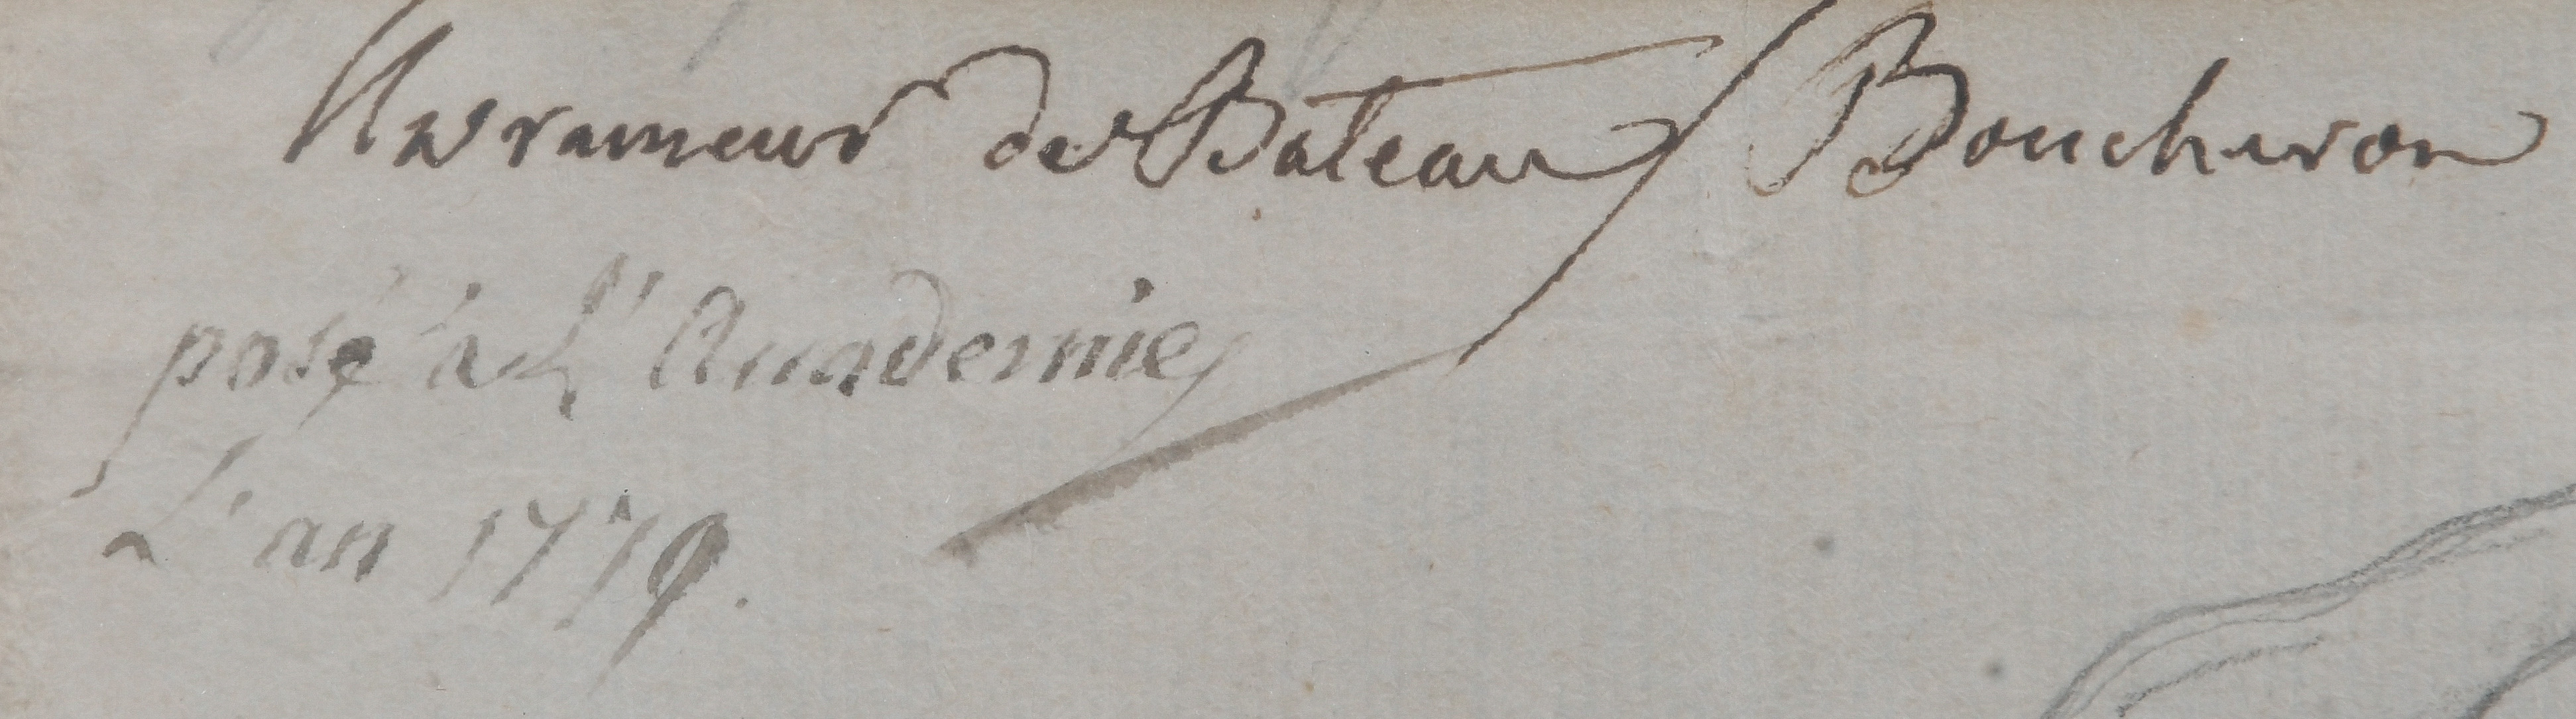 Un rameur de Bateau Boucheron
posé à L'Accademie
L'an 1779.